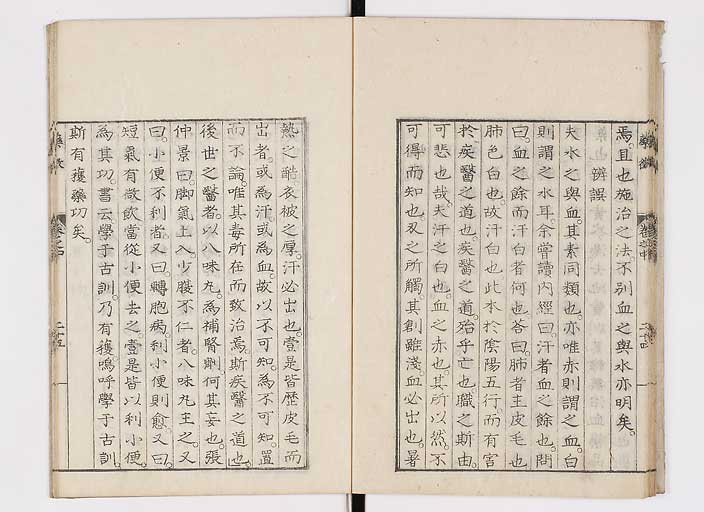 焉且也施治之法不別血之與水亦明矣
辨誤
夫水之與血其素同類也亦唯赤則謂之血白
則謂之水耳余嘗讀內經曰汗者血之餘也問
曰血之餘而汗白者何也答曰肺者主皮毛也
肺色白也故汗白也此本於陰陽五行而有害
於疾醫之道也疾醫之道殆乎亡也職之斯由
可悲也哉夫汗之白也血之赤也其所以然不
可得而知也刃之所觸其創雖淺血必出也暑
藥徵
卷之中
熱之酷衣被之厚汗必出也壹是皆歷皮毛而
出者或為汗或為血故以不可知為不可知置
而不論唯其毒所在而致治焉斯疾醫之道也
後世之醫者以八味丸為補腎劑何其妄也張
仲景曰脚氣上入少腹不仁者八味丸主之又
曰小便不利者又曰轉胞病利小便則愈又曰
短氣有微飲當從小便去之壹是皆以利小便
為其功書云學于古訓乃有獲嗚呼學于古訓
斯有獲藥功矣
藥徵
卷之中
二十五